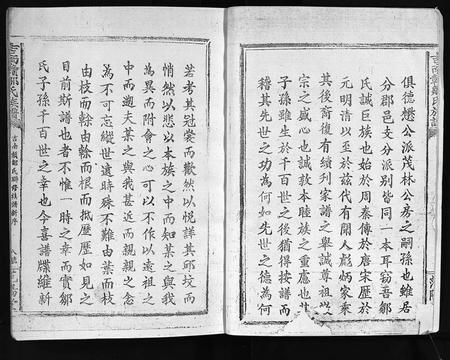 俱德懋公派茂林公房之嗣孫也雖居
分郡邑支分派別皆同一本耳窃吾鄒
氏誠巨族也始於周秦傳於唐宋歷於
元明清以至於玆代有聞人彪炳家乘
其後裔復有續列家譜之舉誠尊祖敬
宗之盛心也誠敦本睦族之重慮也其
子孫雖生於千百世之後猶得按譜而
稽其先世之如何如先世之德為何
若考其冠裳而歡然以悦詳其邱坟而
悄然以悲以本族之中而知某之與我
為異而附會之心可以不作以遠祖之
中而遡夫某之與我甚近而親親之念
為不可忘縱世遠時殊不難由葉而枝
由枝而榦由榦而根而抵歷歷如見之
目前斯譜也者不惟一時之幸而實鄒
氏子孫千百世之幸也今喜譜牒維新
吉南贛鄒氏族譜
吉南贛鄒氏聯修族譜新序